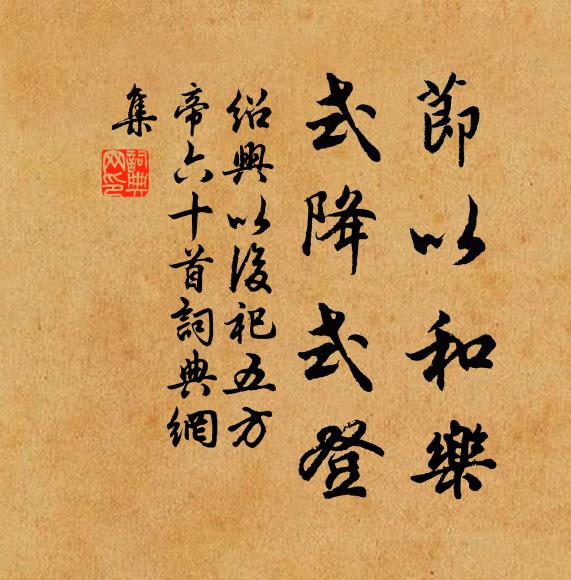 節以和樂
式降式登
紹興以後祀五方
帝六十首詞典網
集
詞典網印